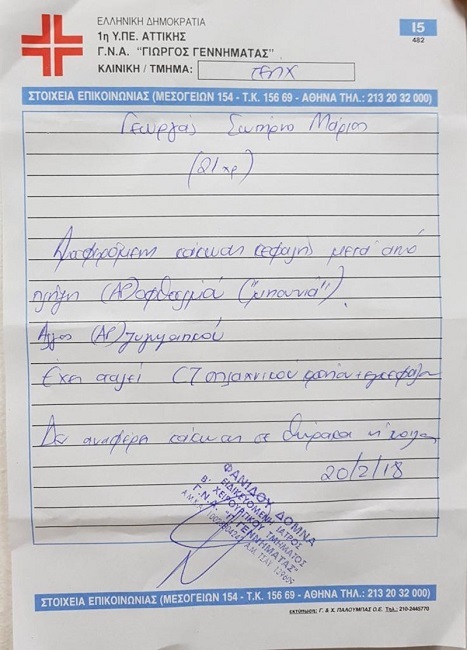 ΕΛΛΗΝΙΚΗ ΔΗΜΟΚΡΑΤΙΑ
1η Υ.ΠΕ. ΑΤΤΙΚΗΣ
Γ.Ν.Α. "ΓΙΩΡΓΟΣ ΓΕΝΝΗΜΑΤΑΣ"
ΚΛΙΝΙΚΗ / ΤΜΗΜΑ:
15
482
ΣΤΟΙΧΕΙΑ ΕΠΙΚΟΙΝΩΝΙΑΣ (ΜΕΣΟΓΕΙΩΝ 154 - Τ.Κ. 156 69 - ΑΘΗΝΑ ΤΗΛ.: 213 20 32 000)
Μάριος
(21 χρ)
κάκωση κεφαλής μετά από
πλήξη (ΑΡ) οφθαλμού ("μπουνιά").
Άλγος (ΑΡ) ζυγωματικού
Έχει σταλεί CT σπλαχνικού κρανίου + εγκεφάλου
Δεν αναφέρει κάκωση σε θώρακα ή κοιλία
20/2/18
ΦΑΝΙΔΟΥ ΔΟΜΝΑ
ΕΙΔΙΚΕΥΟΜΕΝΗ ΙΑΤΡΟΣ
Β' ΧΕΙΡΟΥΡΓΙΚΟΥ ΤΜΗΜΑΤΟΣ
Γ.Ν.Α. "Γ. ΓΕΝΝΗΜΑΤΑΣ"
ΣΤΟΙΧΕΙΑ ΕΠΙΚΟΙΝΩΝΙΑΣ (ΜΕΣΟΓΕΙΩΝ 154 - Τ.Κ. 156 69 - ΑΘΗΝΑ ΤΗΛ.: 213 20 32 000)
εκτύπωση: Γ. & Χ. ΠΑΛΟΥΜΠΑΣ Ο.Ε. Τηλ.: 210-2445770